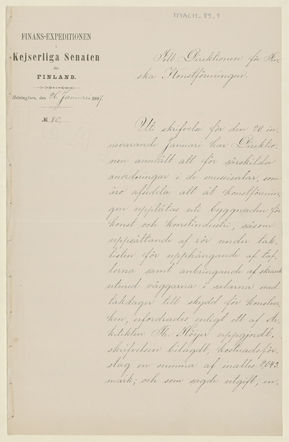 FINANS-EXPEDITIONEN
i
Kejserliga Senaten
för
FINLAND.
Helsingfors, den 26 Januari 1887
№ 80
Till Direktionen för Fin-
ska Konstföreningen.
Uti skrifvelse för den 20 in-
nevarande Januari har Direktio-
nen anmält att för särskilda
anordningar i de museisalar, som
äro afsedda att åt Konstförenin-
gen upplåtas uti byggnaden för
konst och konstindustri, såsom
uppsättande af rör under tak-
listen för upphängande af taf-
lorna samt anbringande af skrank
utmed väggarna i salarna med
takdager till skydd för konstver-
ken, erfordrades enligt ett af Ar-
kitekten Th. Höijer uppgjordt,
skrifvelsen bilagdt, kostnadsför-
slag en summa af inalles 2,093
mark; och som sagde utgift, en-